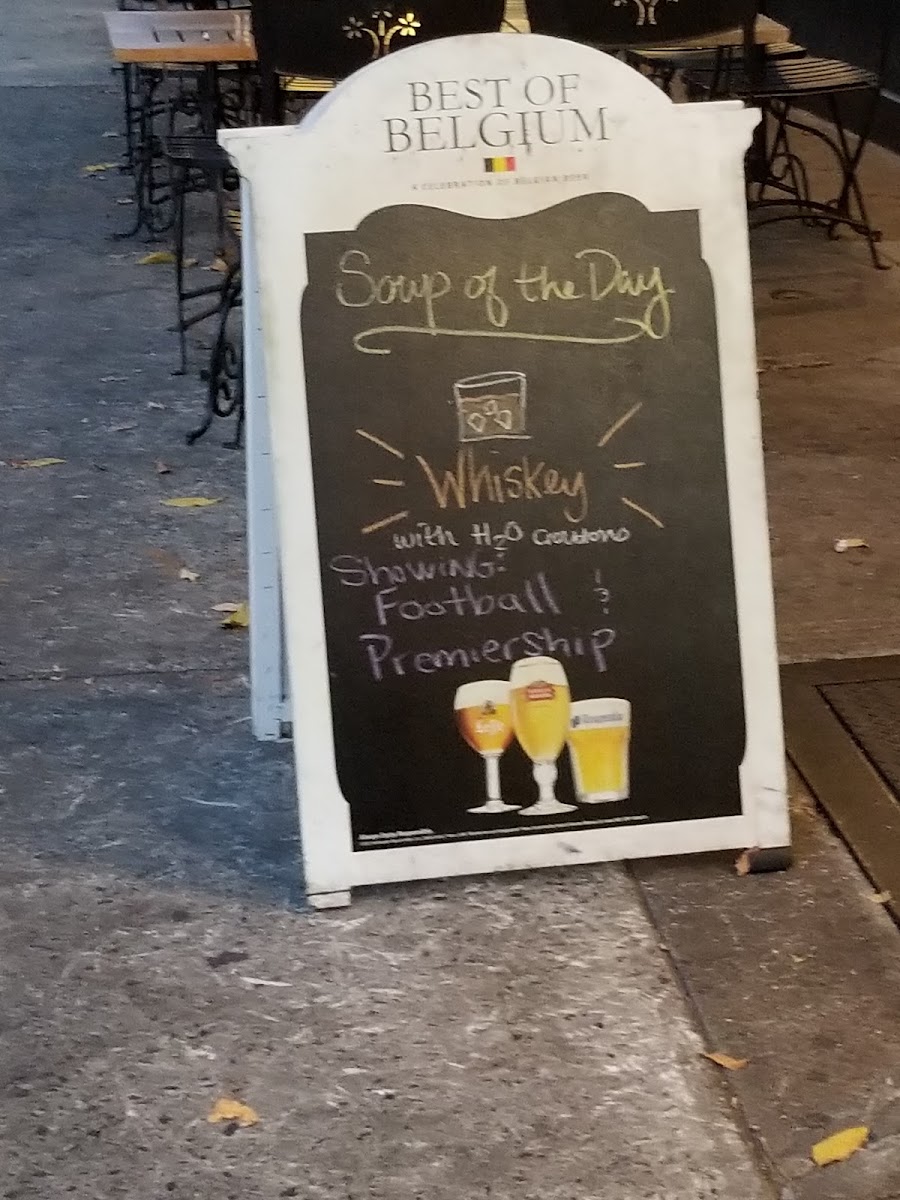 BEST OF
BELGIUM
A CELEBRATION OF BELGIAN BEER
Soup of the Day
Whiskey
with H2O croutons
Showing:
Football &
Premiership
Leffe